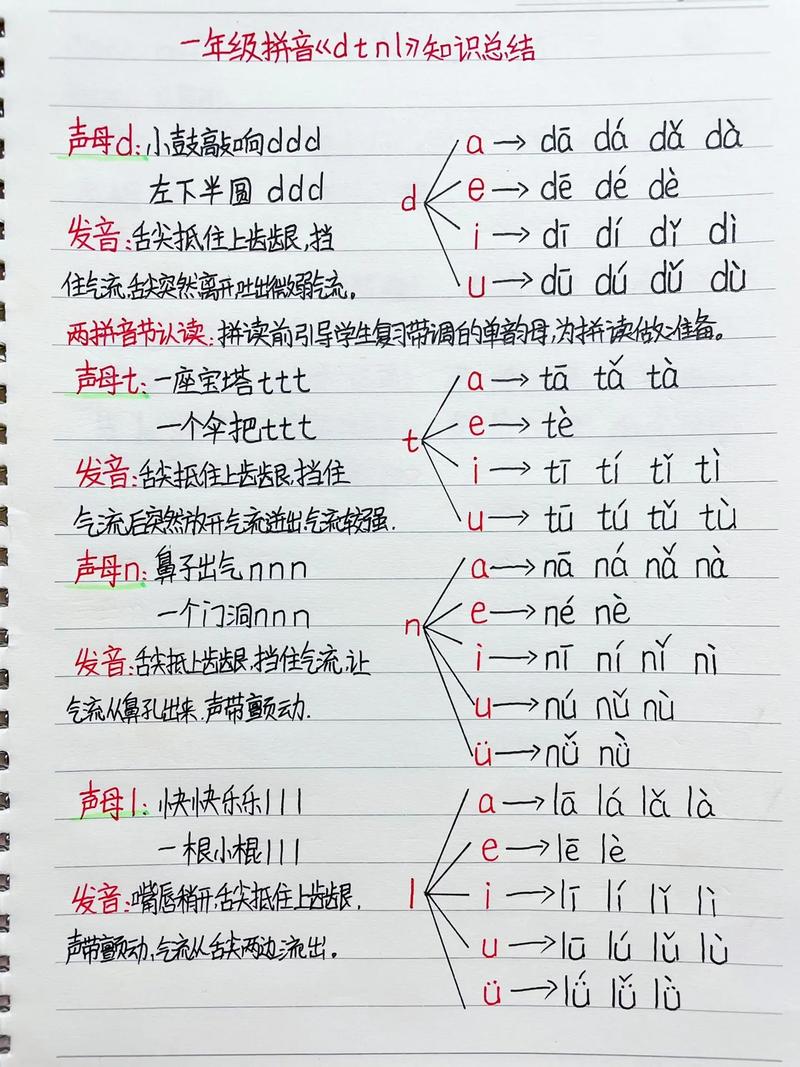 一年级拼音《d t n l》知识总结
声母d:小鼓敲响ddd
左下半圆 ddd
发音:舌尖抵住上齿龈,挡
住气流,舌尖突然离开,吐出微弱气流。
d
a→dā dá dǎ dà
e→dē dé dè
i→dī dí dǐ dì
u→dū dú dǔ dù
两拼音节认读:拼读前引导学生复习带调的单韵母,为拼读做准备。
声母t:一座宝塔ttt
一个伞把ttt
发音:舌尖抵住上齿龈,挡住
气流后突然放开气流迸出气流较强.
t
a→tā tǎ tà
e→tè
i→tī tí tǐ tì
u→tū tú tǔ tù
声母n:鼻子出气nnn
一个门洞nnn
发音:舌尖抵上齿龈,挡住气流,让
气流从鼻孔出来.声带颤动.
n
a→nā ná nǎ nà
e→né nè
i→nī ní nǐ nì
u→nú nǔ nù
ü→nǚ nǜ
声母l:快快乐乐lll
一根小棍lll
发音:嘴唇稍开,舌尖抵住上齿龈,
声带颤动,气流从舌尖两边流出。
l
a→lā lá lǎ là
e→lē lè
i→lī lí lǐ lì
u→lū lú lǔ lù
ü→lǘ lǚ lǜ